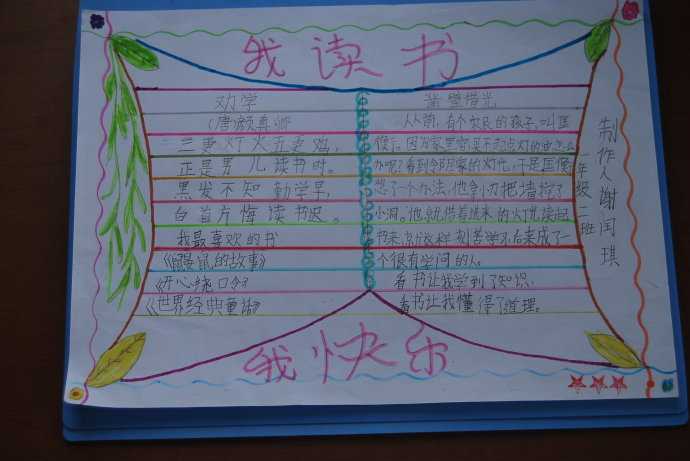 我读书
劝学
(唐颜真卿
三更灯火五更鸡,
正是男儿读书时。
黑发不知勤学早,
白首方悔读书迟。
我最喜欢的书
《鼹鼠的故事》
《开心绕口令》
《世界经典童话》
凿壁借光
从前,有个农民的孩子,叫匡
衡,因为家里穷买不起点灯的油怎么
办呢?看到邻居家的灯光,于是匡衡
想了个办法,他拿刀把墙挖了
小洞。他就借着进来的灯光读起
书来,就这样刻苦学习,后来成了一
个很有学问的人。
看书让我学到了知识,
看书让我懂得了道理。
制作人谢闰琪
年级二班
我快乐